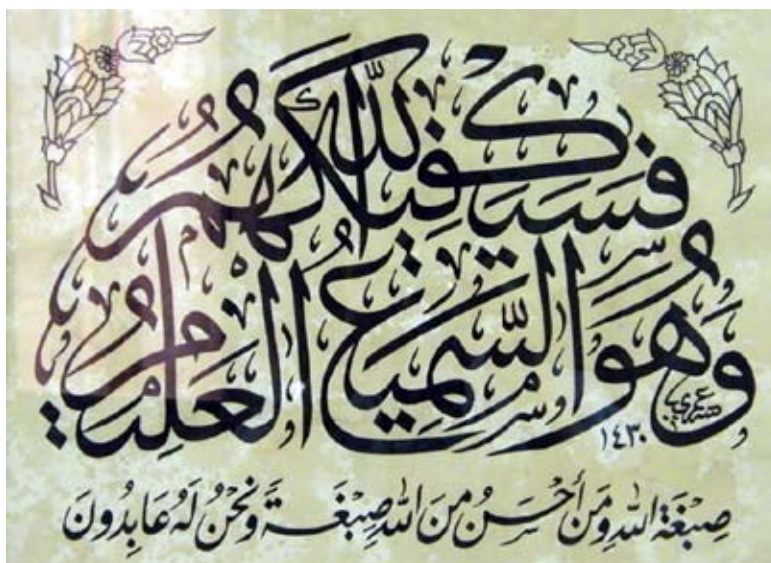 فَسَيَكْفِيكَهُمُ اللَّهُ
وَهُوَ السَّمِيعُ الْعَلِيمُ
١٤٣٠
صِبْغَةَ اللهِ وَمَنْ أَحْسَنُ مِنَ اللهِ صِبْغَةً وَنَحْنُ لَهُ عَابِدُونَ